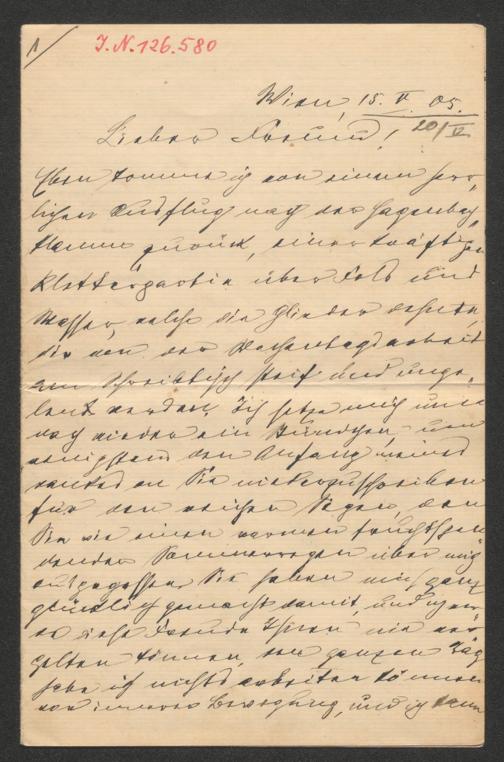 1
J.N. 126.580
Wien, 15. V. 05.
20/V
Lieber Freund!
Eben komme ich von einem herr-
lichen Ausflug nach der Hagenbach-
klamm zurück, einer kräftigen
Kletterpartie über Fels und
Wasser, welche die Glieder dehnte,
die von der Wochentagsarbeit
am Schreibtisch steif und unge-
lenk werden. Ich setze mich nur
noch nieder ein Stündchen, um
wenigstens den Anfang meines
Dankes an Sie niederzuschreiben
für den reichen Segen, den
Sie wie einen warmen fruchtspen-
denden Sommerregen über mich
ausgegossen. Sie haben mich ganz
glücklich gemacht damit, und
diese Freude Ihnen nie ver-
gelten können, den ganzen Tag
habe ich nichts arbeiten können
vor innerer Bewegung, und ich kann